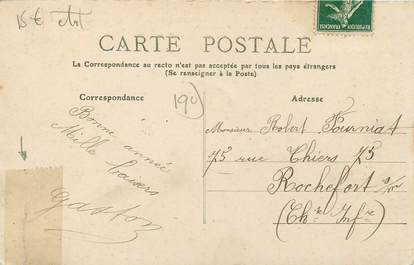 15 €
CARTE POSTALE
La Correspondance au recto n'est pas acceptée par tous les pays étrangers
(Se renseigner à la Poste)
Correspondance
190
Adresse
Bonne année
Mille baisers
Gaston
Monsieur Robert Fourniat
75 rue Thiers 75
Rochefort s/m
(Ch^te Inf^re)